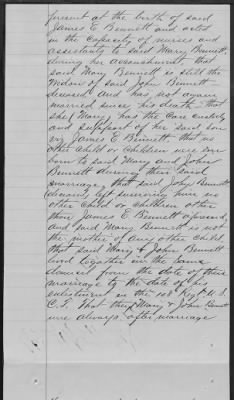 present at the birth of said
James E Bennett and acted
in the capacity of nurses and
assistants to said Mary Bennett
during her accouchment that
said Mary Bennett is still the
widow of said John Bennett
deceased and has not again
married since his death. That
she Mary, has the care custody
and support of her said son
James E Bennett, that no
other child or children were ever
born to said Mary and John
Bennett during their said
marriage, that said John Bennett
leaving him surviving no
other child or children other
than James E Bennett aforesaid,
and said Mary Bennett is not
the mother of any other child,
that said Mary & John Bennett
lived together in the same
domicil from the date of their
marriage to the date of his
enlistment in the 108 Regt. U.S.
C.T. That they Mary & John Bennett
were always after marriage